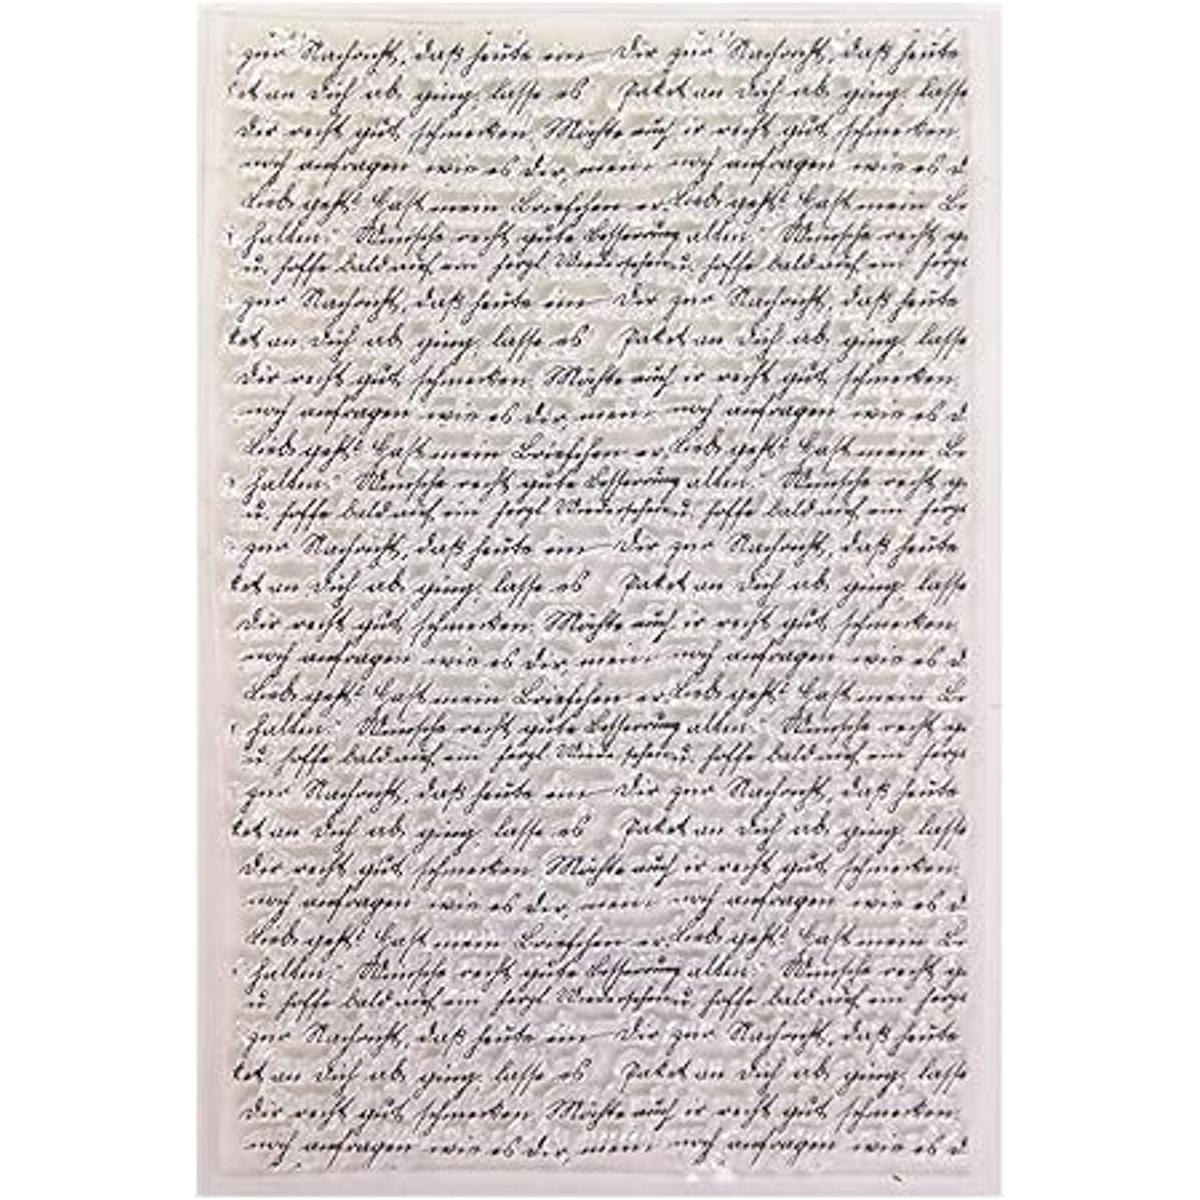 zur Nachricht, daß heute ein Dir zur Nachricht, daß heute
ket an Dich ab ging, lasse es Paket an Dich ab ging, lasse
Dir recht gut schmecken. Möchte auch ir recht gut schmecken.
noch anfragen wie es Dir, mein noch anfragen wie es d
Liebe geht? Hast mein Briefchen er Liebe geht? Hast mein Br
halten? Wünsche recht gute Besserung alten? Wünsche recht gu
u. hoffe bald auf ein herzl. Wiedersehen u. hoffe bald auf ein herz
zur Nachricht, daß heute ein Dir zur Nachricht, daß heute
ket an Dich ab ging, lasse es Paket an Dich ab ging, lasse
Dir recht gut schmecken. Möchte auch ir recht gut schmecken.
noch anfragen wie es Dir, mein noch anfragen wie es d
Liebe geht? Hast mein Briefchen er Liebe geht? Hast mein Br
halten? Wünsche recht gute Besserung alten? Wünsche recht gu
u. hoffe bald auf ein herzl. Wiedersehen u. hoffe bald auf ein herz
zur Nachricht, daß heute ein Dir zur Nachricht, daß heute
ket an Dich ab ging, lasse es Paket an Dich ab ging, lasse
Dir recht gut schmecken. Möchte auch ir recht gut schmecken.
noch anfragen wie es Dir, mein noch anfragen wie es d
Liebe geht? Hast mein Briefchen er Liebe geht? Hast mein Br
halten? Wünsche recht gute Besserung alten? Wünsche recht gu
u. hoffe bald auf ein herzl. Wiedersehen u. hoffe bald auf ein herz
zur Nachricht, daß heute ein Dir zur Nachricht, daß heute
ket an Dich ab ging, lasse es Paket an Dich ab ging, lasse
Dir recht gut schmecken. Möchte auch ir recht gut schmecken.
noch anfragen wie es Dir, mein noch anfragen wie es d
Liebe geht? Hast mein Briefchen er Liebe geht? Hast mein Br
halten? Wünsche recht gute Besserung alten? Wünsche recht gu
u. hoffe bald auf ein herzl. Wiedersehen u. hoffe bald auf ein herz
zur Nachricht, daß heute ein Dir zur Nachricht, daß heute
ket an Dich ab ging, lasse es Paket an Dich ab ging, lasse
Dir recht gut schmecken. Möchte auch ir recht gut schmecken.
noch anfragen wie es Dir, mein noch anfragen wie es d